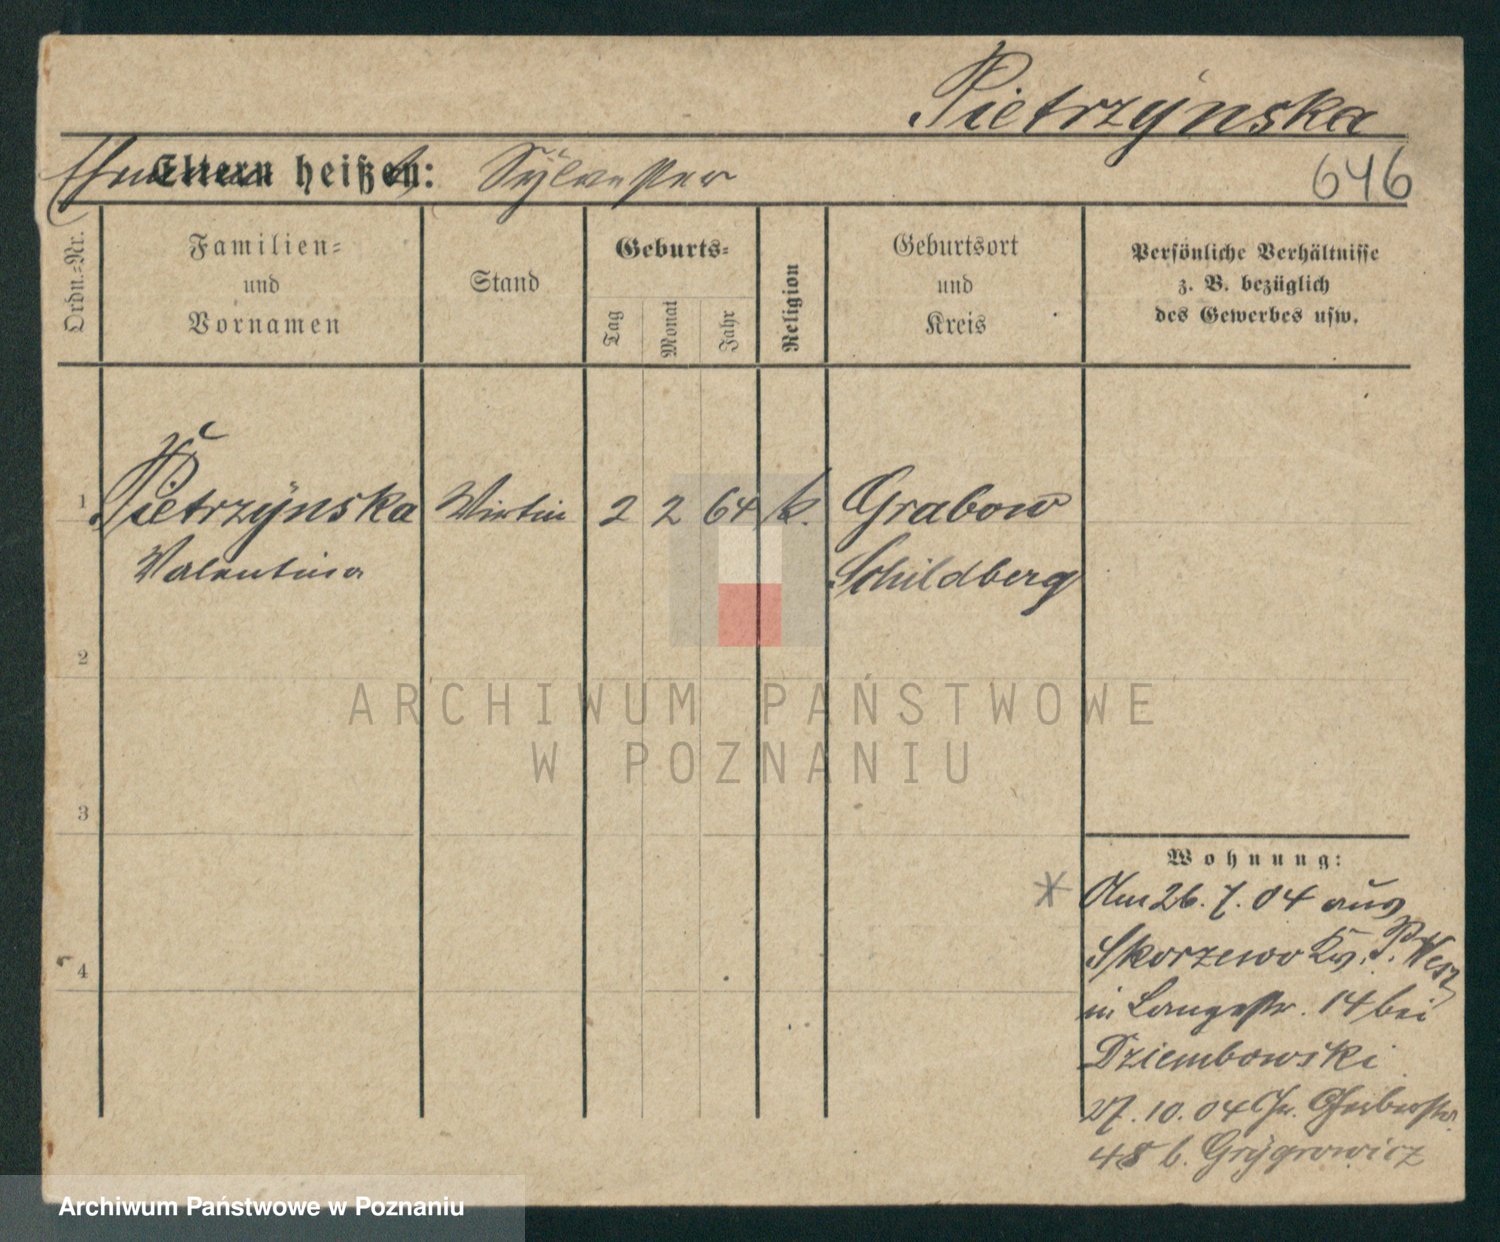 Pietrzÿnska
646
Eltern heißen: Sÿlvester
Ordn.-Nr.
Familien-
und
Vornamen
Stand
Geburts-
Tag
Monat
Jahr
Religion
Geburtsort
und
Kreis
Persönliche Verhältnisse
z. B. bezüglich
des Gewerbes usw.
1 Pietrzÿnska Wirtin 2 2 64 k. Grabow
Valentina Schildberg
2
3
4
ARCHIWUM PAŃSTWOWE
W POZNANIU
Wohnung:
Am 26. 7. 04 aus
Skorzewo Kr. P. West
in Langestr. 14 bei
Dziembowski
27. 10. 04
48 b. Grÿgrowicz
Archiwum Państwowe w Poznaniu